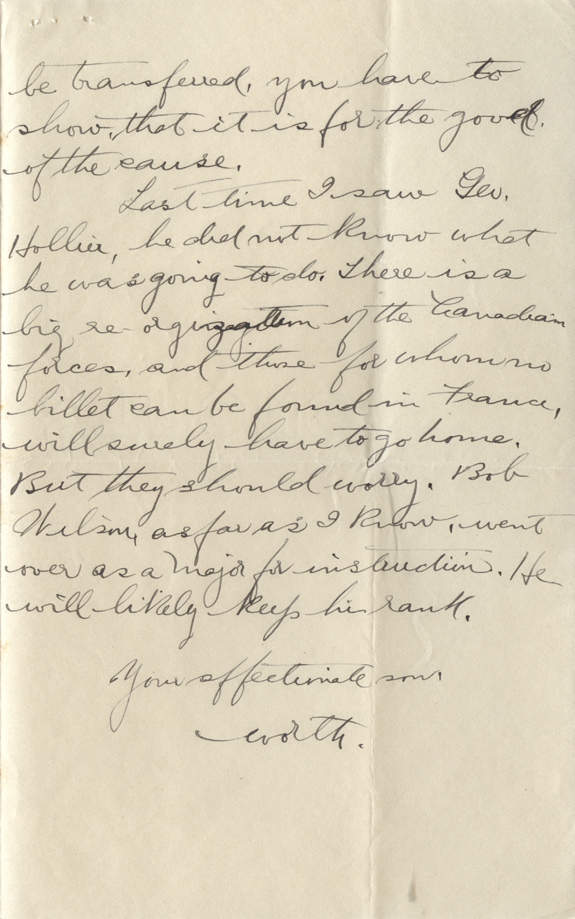 be transferred, you have to
show, that it is for the good.
of the cause.
Last time I saw Geo.
Hollier, he did not know what
he was going to do. There is a
big re-orginization of the Canadian
forces, and those for whom no
billet can be found in France,
will surely have to go home.
But they should worry. Bob
Wilson, as far as I know, went
over as a Major for instruction. He
will likely keep his rank.
Your affectionate son.
Worth.